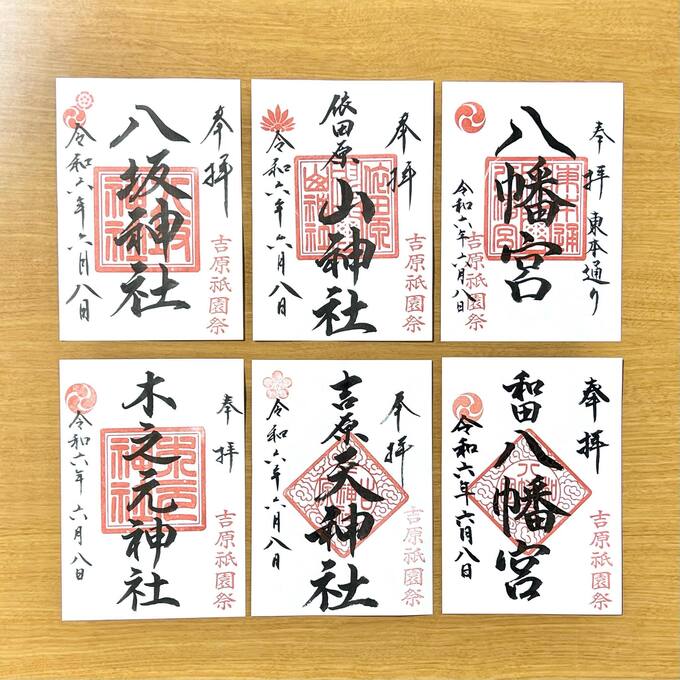 奉拝
八坂神社
令和六年六月八日
吉原祇園祭
奉拝
依田原
山神社
令和六年六月八日
吉原祇園祭
奉拝
東本通り
八幡宮
令和六年六月八日
吉原祇園祭
奉拝
木之元神社
令和六年六月八日
吉原祇園祭
奉拝
吉原
天神社
令和六年六月八日
吉原祇園祭
奉拝
和田
八幡宮
令和六年六月八日
吉原祇園祭